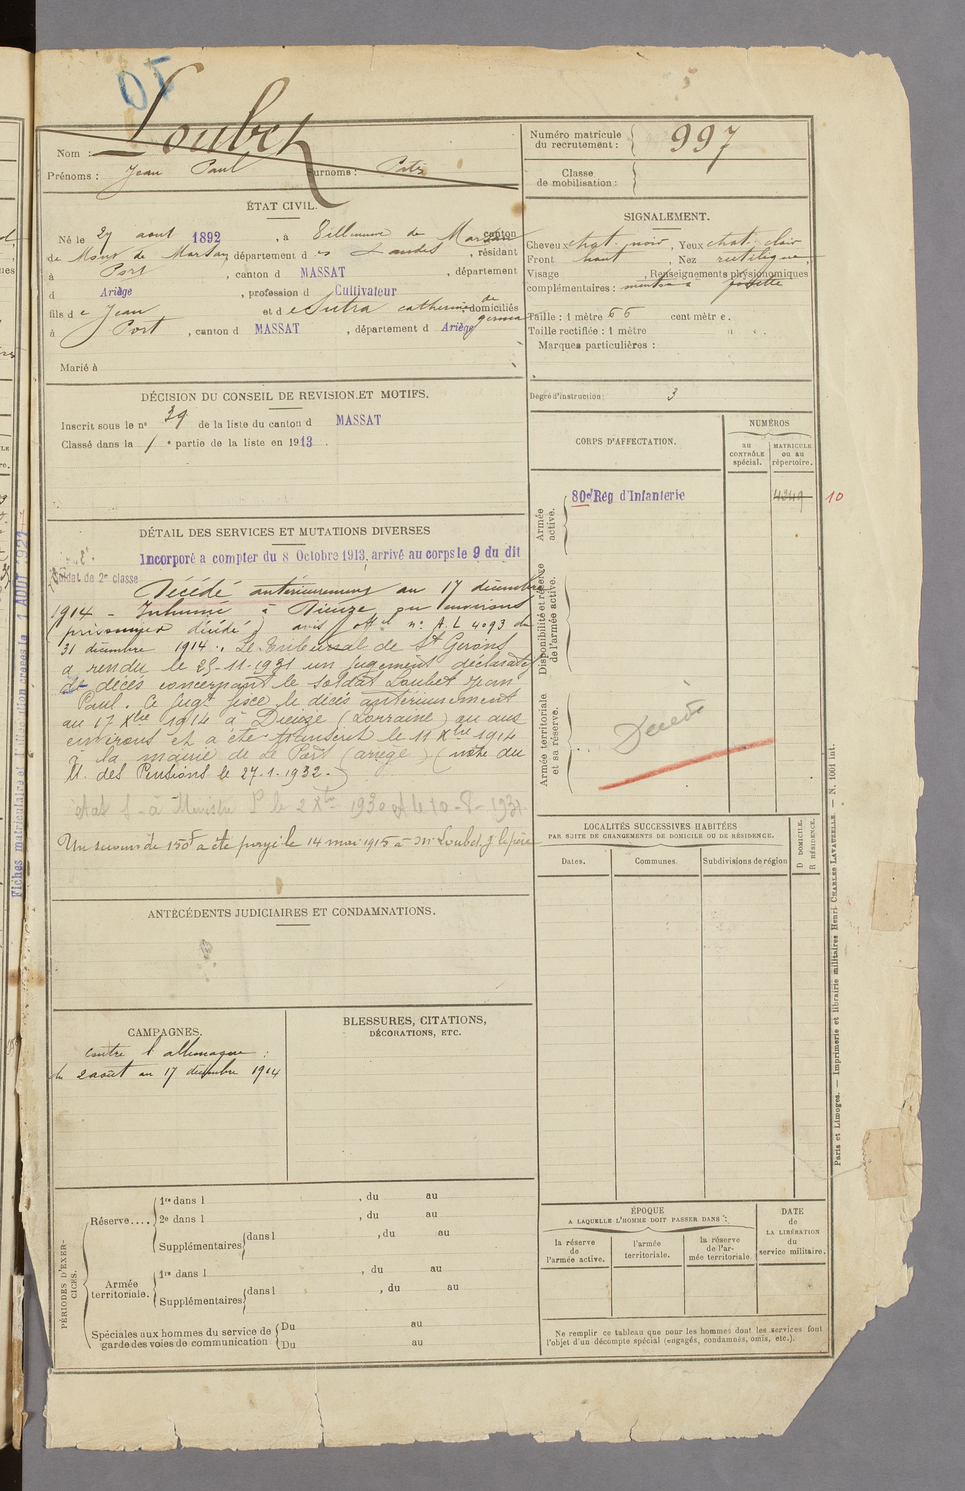 Loubet
Nom :
Prénoms : Jean Paul Surnoms :
Numéro matricule
du recrutement : 997
Classe
de mobilisation :
ÉTAT CIVIL.
Né le 27 août 1892, à Villeneuve de Marsan canton
de Mont de Marsan, département des Landes, résidant
à Port, canton d MASSAT, département
d Ariège, profession d Cultivateur
fils de Jean et de Sutra catherine domiciliés
à Port, canton d MASSAT, département d Ariège
Marié à
SIGNALEMENT.
Cheveux chat. noir, Yeux chat. clair
Front haut, Nez rectiligne,
Visage , Renseignements physionomiques
complémentaires : menton à fossette
Taille : 1 mètre 66 centimètre.
Taille rectifiée : 1 mètre
Marques particulières :
Degré d'instruction : 3
DÉCISION DU CONSEIL DE REVISION ET MOTIFS.
Inscrit sous le n° 39 de la liste du canton d MASSAT
Classé dans la 1e partie de la liste en 1913.
CORPS D'AFFECTATION.
NUMÉROS
au
CONTRÔLE
spécial.
MATRICULE
ou au
répertoire.
Armée
active.
80e Rég d'Infanterie
4349
10
Disponibilité et réserve
de l'armée active.
Armée territoriale
et sa réserve.
Décédé
DÉTAIL DES SERVICES ET MUTATIONS DIVERSES
Incorporé a compter du 8 Octobre 1913, arrivé au corps le 9 du dit
Soldat de 2e classe
Décédé antérieurement au 17 décembre
1914 - Inhumé à Dieuze ou environs
(prisonnier décédé) avis off el n° A. L 4093 du
31 décembre 1914. Le Tribunal de St Girons
a rendu le 25-11-1931 un jugement déclaratif
de décès concernant le soldat Loubet Jean
Paul. Ce jugt fixe le décès antérieurement
au 17 Xbre 1914 à Dieuze (Lorraine) ou aux
environs et a été transcrit le 11 Xbre 1914
à la mairie de Le Port (ariège) (note du
M. des Pensions le 27-1-1932.)
Un secours de 150f a été payé le 14 mai 1915 à Mr Loubet J. le père
LOCALITÉS SUCCESSIVES HABITÉES
PAR SUITE DE CHANGEMENTS DE DOMICILE OU DE RÉSIDENCE.
Dates.
Communes.
Subdivisions de région
D DOMICILE.
R RÉSIDENCE.
ANTÉCÉDENTS JUDICIAIRES ET CONDAMNATIONS.
CAMPAGNES.
contre l'allemagne :
du 2 août au 17 décembre 1914
BLESSURES, CITATIONS,
DÉCORATIONS, ETC.
PÉRIODES D'EXER-
CICES.
Réserve....
1re dans l , du au
2e dans l , du au
Supplémentaires dans l , du au
Armée
territoriale.
1re dans l , du au
Supplémentaires dans l , du au
Spéciales aux hommes du service de
garde des voies de communication
Du au
Du au
ÉPOQUE
A LAQUELLE L'HOMME DOIT PASSER DANS :
la réserve
de
l'armée active.
l'armée
territoriale.
la réserve
de l'ar-
mée territoriale.
DATE
de
LA LIBÉRATION
du
service militaire.
Ne remplir ce tableau que pour les hommes dont les services font
l'objet d'un décompte spécial (engagés, condamnés, omis, etc.).
Paris et Limoges. — Imprimerie et librairie militaires Henri CHARLES LAVAUZELLE. — N. 1001 int.